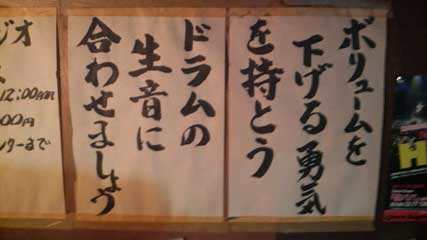 ボリュームを
下げる勇気
を持とう
ドラムの
生音に
合わせましょう
ジオ
12:00
00円
ンターまで
H